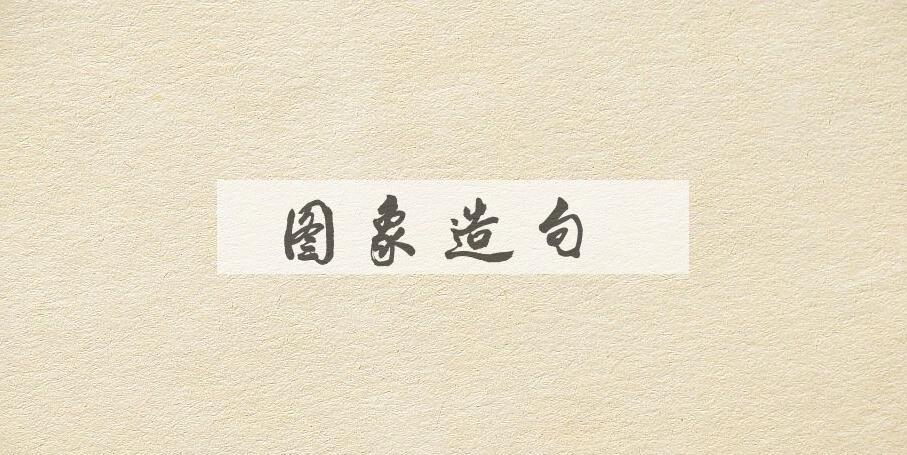 图象造句